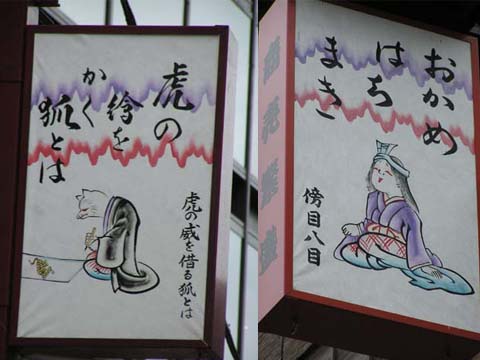 虎の
絵を
かく
狐とは
虎の威を借る狐とは
おかめ
はち
まき
傍目八目